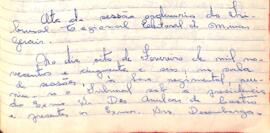 Ata da sessão ordinaria do Tri-
bunal Regional Eleitoral de Minas
Gerais.
Aos dias oito de Fevereiro de mil no-
vecentos e cinquenta e um, na sala
de sessões, à hora regimental, reu-
niu-se o Tribunal sob a presidencia
do Exmo Sr Des Amilcar de Castro
e presentes os Exmos. Srs. Desembarga-